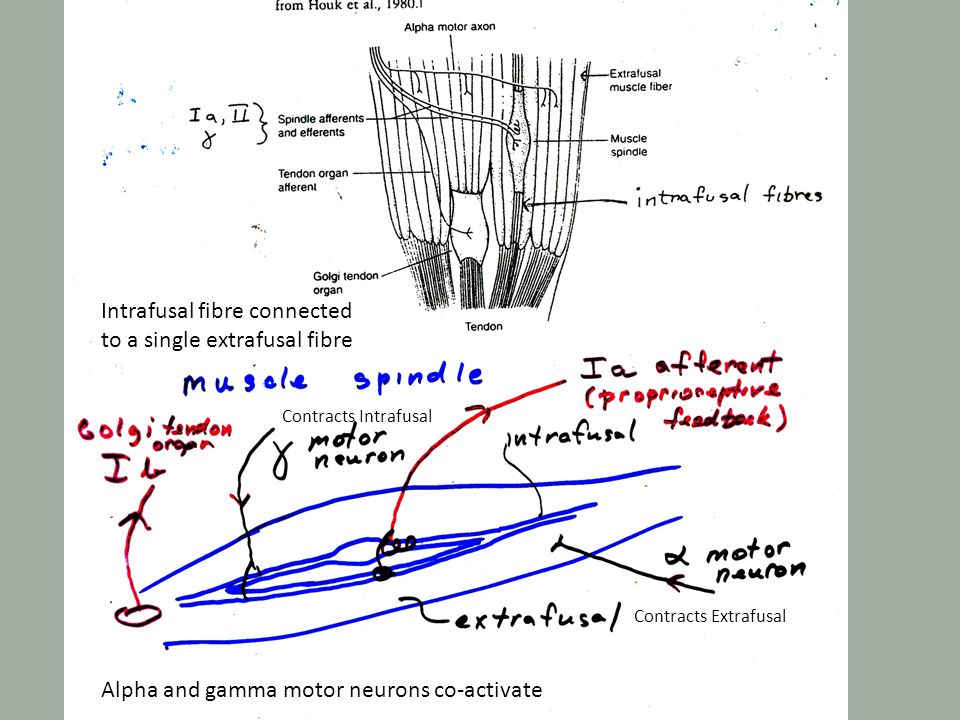 from Houk et al., 1980.)
Alpha motor axon
Extrafusal
muscle fiber
Ia, II
γ
Spindle afferents
and efferents
Muscle
spindle
Tendon organ
afferent
intrafusal fibres
Golgi tendon
organ
Tendon
Intrafusal fibre connected
to a single extrafusal fibre
muscle spindle
Ia afferent
(proprioceptive
feedback)
Contracts Intrafusal
Golgi tendon
organ
Ib
γ motor
neuron
intrafusal
α motor
neuron
extrafusal
Contracts Extrafusal
Alpha and gamma motor neurons co-activate